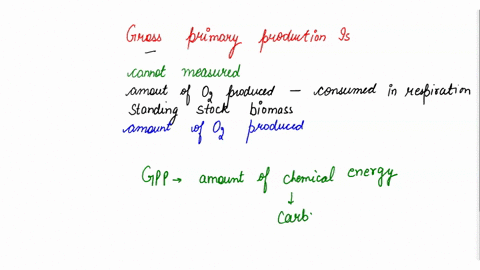 Gross primary production Is
cannot measured
amount of O2 produced — consumed in respiration
Standing stock biomass
amount of O2 produced
GPP → amount of chemical energy
↓
Carb